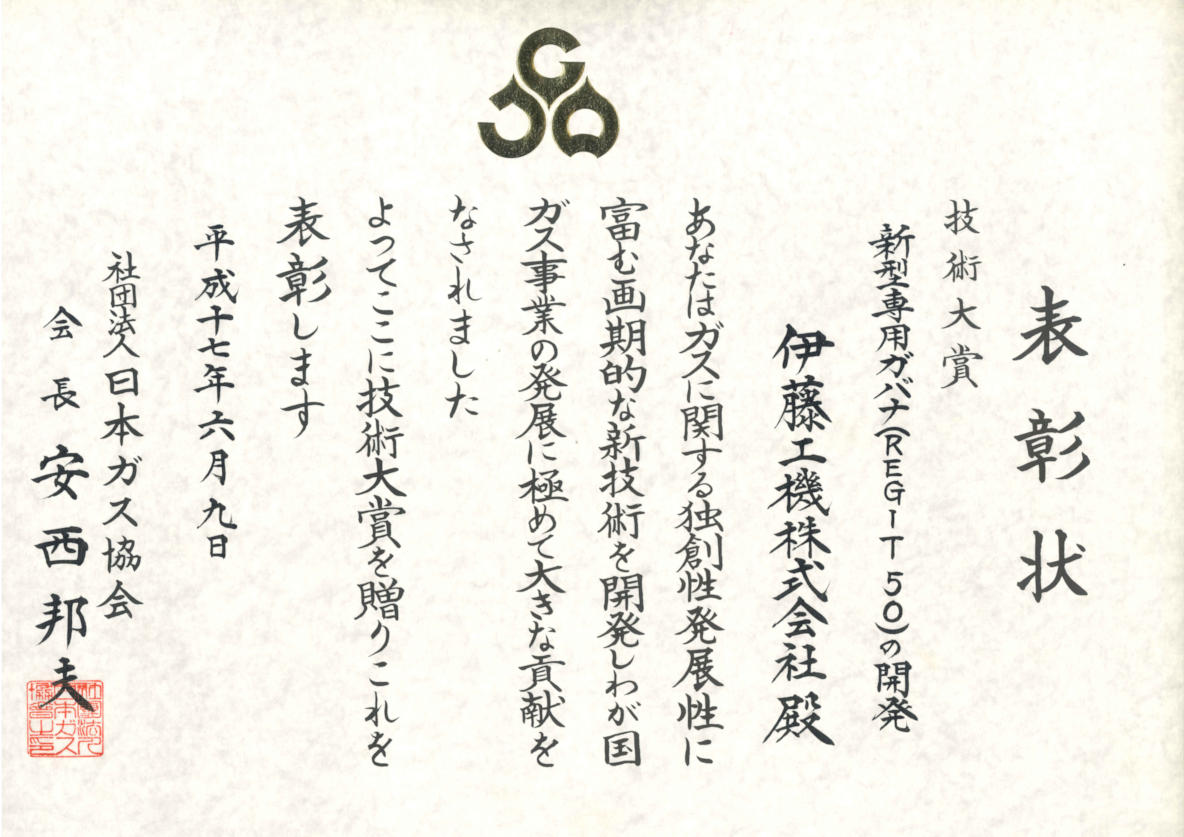 JGA
表彰状
技術大賞
新型専用ガバナ(REGIT50)の開発
伊藤工機株式会社殿
あなたはガスに関する独創性発展性に
富む画期的な新技術を開発しわが国
ガス事業の発展に極めて大きな貢献を
なされました
よってここに技術大賞を贈りこれを
表彰します
平成十七年六月九日
社団法人日本ガス協会
会長安西邦夫
社団法人
日本ガス
協会之印